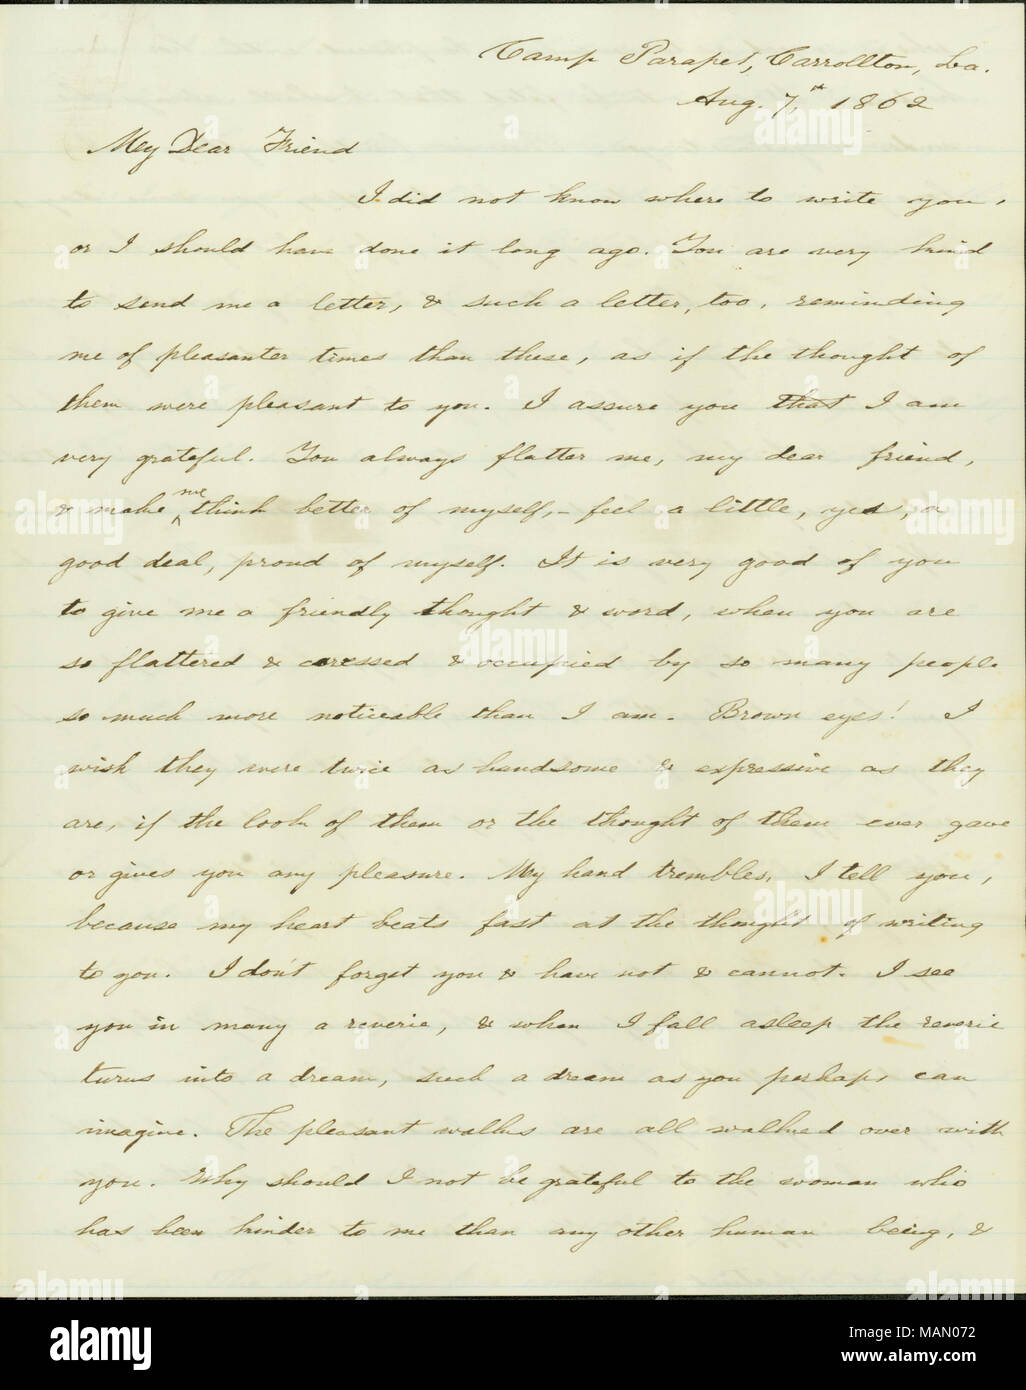 Camp Parapet, Carrollton, La.
Aug. 7, 1862
My Dear Friend
I did not know where to write you,
or I should have done it long ago. You are very kind
to send me a letter, & such a letter, too, reminding
me of pleasanter times than these, as if the thought of
them were pleasant to you. I assure you that I am
very grateful. You always flatter me, my dear friend,
& make me think better of myself, - feel a little, yes, a
good deal, proud of myself. It is very good of you
to give me a friendly thought & word, when you are
so flattered & caressed & occupied by so many people
so much more noticeable than I am. Brown eyes! I
wish they were twice as handsome & expressive as they
are, if the look of them or the thought of them ever gave
or gives you any pleasure. My hand trembles, I tell you,
because my heart beats fast at the thought of writing
to you. I don't forget you & have not & cannot. I see
you in many a reverie, & when I fall asleep the reverie
turns into a dream, such a dream as you perhaps can
imagine. The pleasant walks are all walked over with
you. Why should I not be grateful to the woman who
has been kinder to me than any other human being, &
alamy
a
alamy
Image ID: MAN072
www.alamy.com